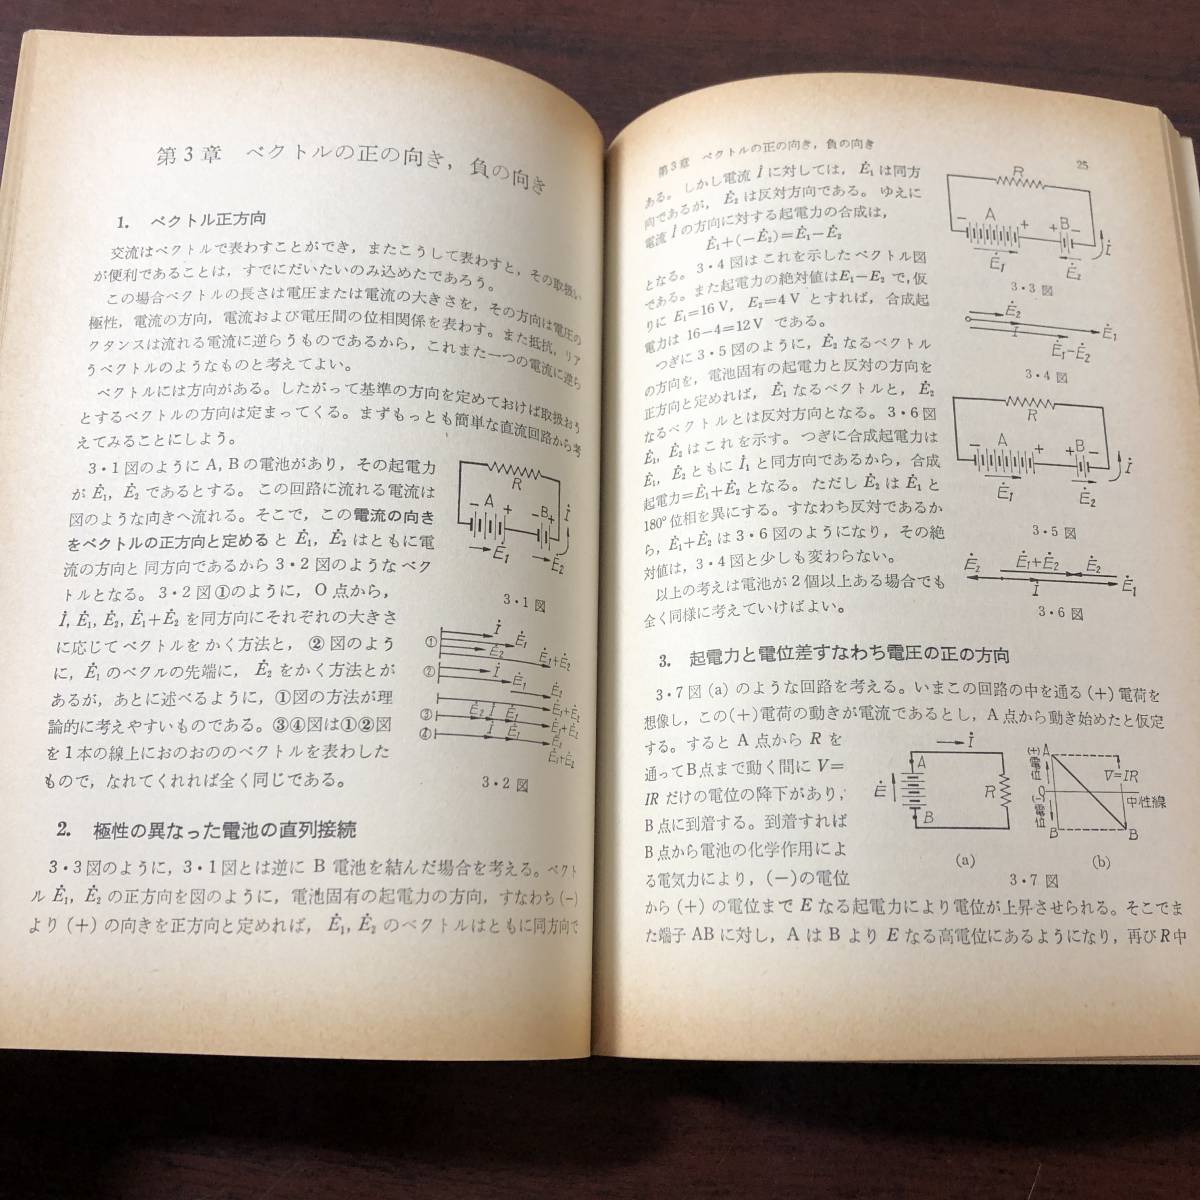 第3章 ベクトルの正の向き，負の向き
1. ベクトル正方向
交流はベクトルで表わすことができ，またこうして表わすと，その取扱い
が便利であることは，すでにだいたいのみ込めたであろう。
この場合ベクトルの長さは電圧または電流の大きさを，その方向は電圧の
極性，電流の方向，電流および電圧間の位相関係を表わす。また抵抗，リア
クタンスは流れる電流に逆らうものであるから，これまた一つの電流に逆ら
うベクトルのようなものと考えてよい。
ベクトルには方向がある。したがって基準の方向を定めておけば取扱おう
とするベクトルの方向は定まってくる。まずもっとも簡単な直流回路から考
えてみることにしよう。
3・1図のようにA, Bの電池があり，その起電力
がĖ₁, Ė₂であるとする。この回路に流れる電流は
図のような向きへ流れる。そこで，この電流の向き
をベクトルの正方向と定めるとĖ₁, Ė₂はともに電
流の方向と同方向であるから3・2図のようなベク
トルとなる。3・2図①のように，O点から，
İ, Ė₁, Ė₂, Ė₁+Ė₂を同方向にそれぞれの大きさ
に応じてベクトルをかく方法と，②図のよう
に，Ė₁のベクルの先端に，Ė₂をかく方法とが
あるが，あとに述べるように，①図の方法が理
論的に考えやすいものである。③④図は①②図
を1本の線上におのおののベクトルを表わした
もので，なれてくれれば全く同じである。
R
A
B
－ ＋ － ＋
İ
Ė₁ Ė₂
3・1図
① İ Ė₁ Ė₂ Ė₁+Ė₂
② İ Ė₁ Ė₂
Ė₁+Ė₂
③ Ė₂ İ Ė₁ Ė₁+Ė₂
④ İ Ė₁ Ė₂
Ė₁+Ė₂
3・2図
2. 極性の異なった電池の直列接続
3・3図のように，3・1図とは逆にB電池を結んだ場合を考える。ベクト
ルĖ₁, Ė₂の正方向を図のように，電池固有の起電力の方向，すなわち(－)
より(＋)の向きを正方向と定めれば，Ė₁, Ė₂のベクトルはともに同方向で
第3章 ベクトルの正の向き，負の向き 25
ある。しかし電流İに対しては，Ė₁は同方
向であるが，Ė₂は反対方向である。ゆえに
電流İの方向に対する起電力の合成は，
Ė₁+(－Ė₂)=Ė₁－Ė₂
となる。3・4図はこれを示したベクトル図
である。また起電力の絶対値はE₁－E₂で，仮
りにE₁=16V, E₂=4Vとすれば，合成起
電力は16－4=12Vである。
つぎに3・5図のように，Ė₂なるベクトル
の方向を，電池固有の起電力と反対の方向を
正方向と定めれば，Ė₁なるベクトルと，Ė₂
なるベクトルとは反対方向となる。3・6図
Ė₁, Ė₂はこれを示す。つぎに合成起電力は
Ė₁, Ė₂ともにİ₁と同方向であるから，合成
起電力=Ė₁+Ė₂となる。ただしĖ₂はĖ₁と
180°位相を異にする。すなわち反対であるか
ら，Ė₁+Ė₂は3・6図のようになり，その絶
対値は，3・4図と少しも変わらない。
以上の考えは電池が2個以上ある場合でも
全く同様に考えていけばよい。
R
－ A ＋ B －
İ
Ė₁ Ė₂
3・3図
Ė₂
İ Ė₁
Ė₁－Ė₂
3・4図
R
－ A ＋ ＋ B －
İ
Ė₁ Ė₂
3・5図
Ė₂ Ė₁+Ė₂ Ė₂
İ Ė₁
3・6図
3. 起電力と電位差すなわち電圧の正の方向
3・7図(a)のような回路を考える。いまこの回路の中を通る(＋)電荷を
想像し，この(＋)電荷の動きが電流であるとし，A点から動き始めたと仮定
する。するとA点からRを
通ってB点まで動く間にV=
IRだけの電位の降下があり，
B点に到着する。到着すれば
B点から電池の化学作用によ
る電気力により，(－)の電位
İ
A
Ė R
B
(a)
(＋)電位 A
V=IR
O 中性線
(－)電位
B B
(b)
3・7図
から(＋)の電位までEなる起電力により電位が上昇させられる。そこでま
た端子ABに対し，AはBよりEなる高電位にあるようになり，再びR中